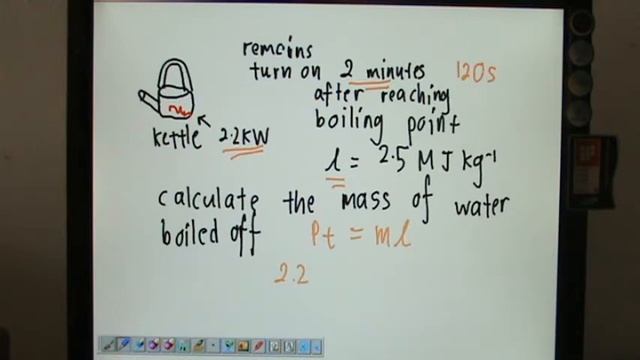 remains
turn on 2 minutes 120s
after reaching
boiling point
kettle 2.2KW
l = 2.5 MJkg⁻¹
calculate the mass of water
boiled off Pt = ml
2.2